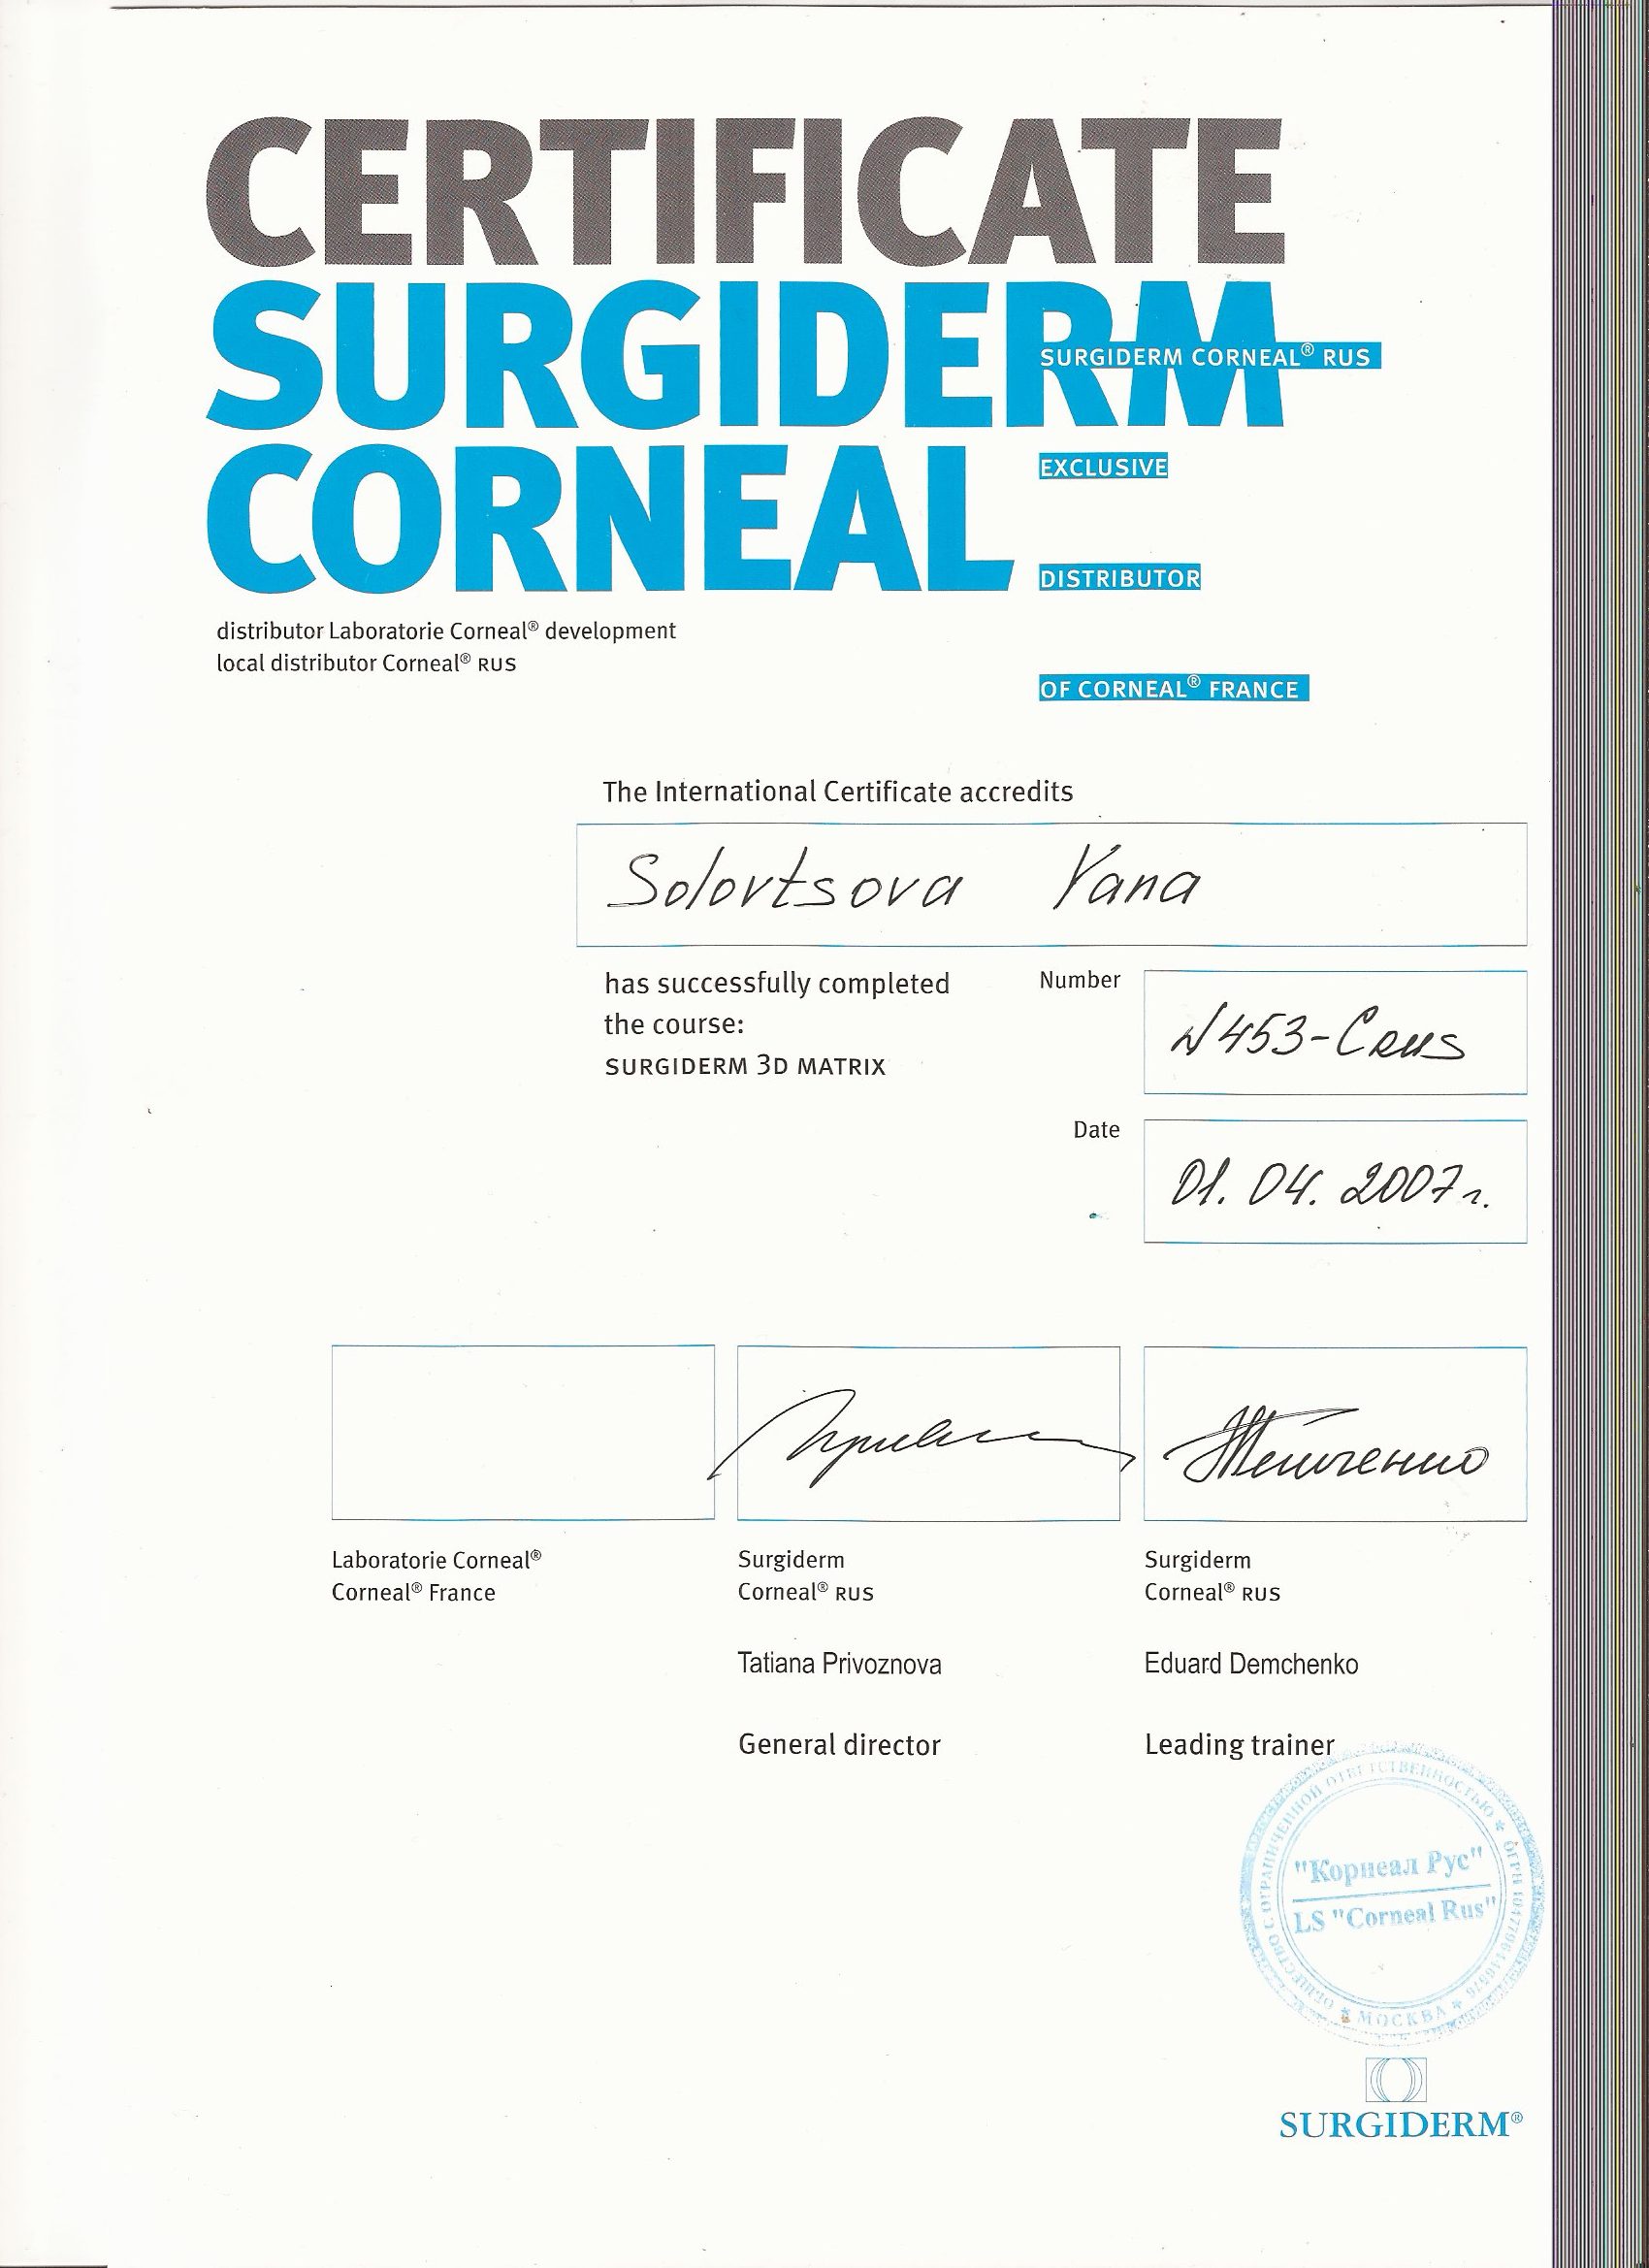 CERTIFICATE
SURGIDERM
CORNEAL
SURGIDERM CORNEAL® RUS
EXCLUSIVE
DISTRIBUTOR
OF CORNEAL® FRANCE
distributor Laboratorie Corneal® development
local distributor Corneal® RUS
The International Certificate accredits
Solovtsova Yana
has successfully completed
the course:
SURGIDERM 3D MATRIX
Number
N453-Crus
Date
01. 04. 2007г.
Laboratorie Corneal®
Corneal® France
Surgiderm
Corneal® RUS
Tatiana Privoznova
General director
Surgiderm
Corneal® RUS
Eduard Demchenko
Leading trainer
ОБЩЕСТВО С ОГРАНИЧЕННОЙ ОТВЕТСТВЕННОСТЬЮ * ОГРН
"Корнеал Рус"
LS "Corneal Rus"
* МОСКВА *
SURGIDERM®